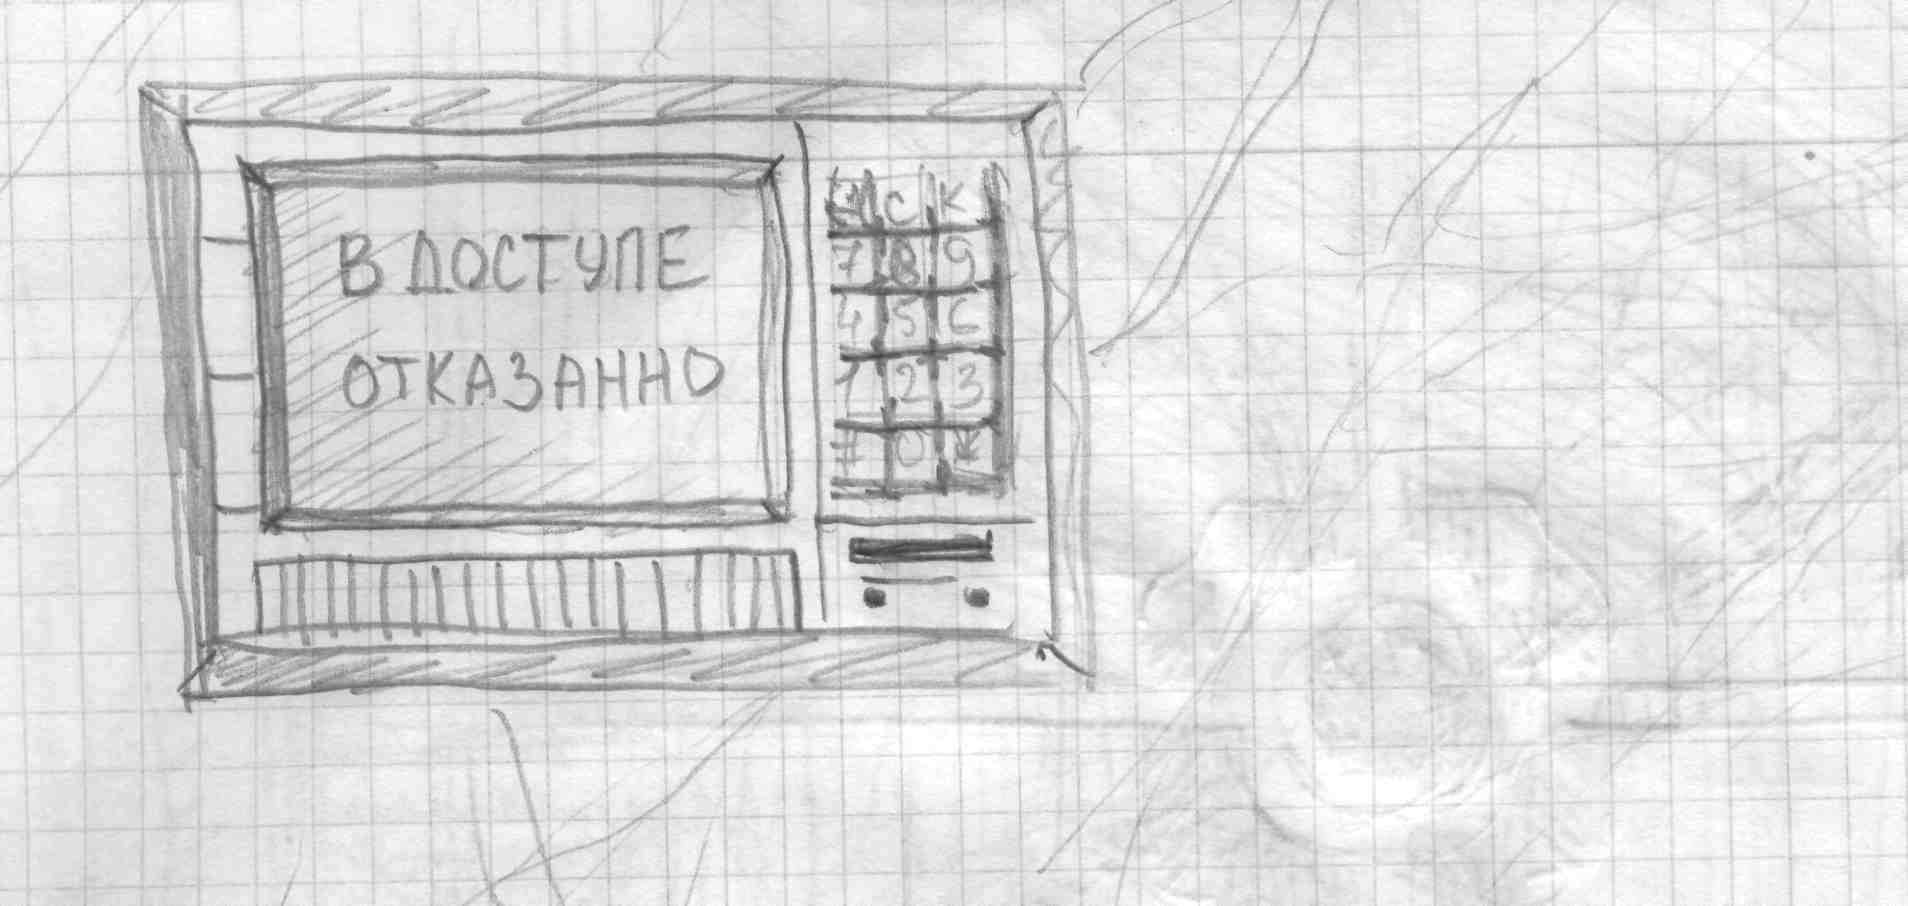 В ДОСТУПЕ
ОТКАЗАННО
С К
7 8 9
4 5 6
1 2 3
# 0 Ж